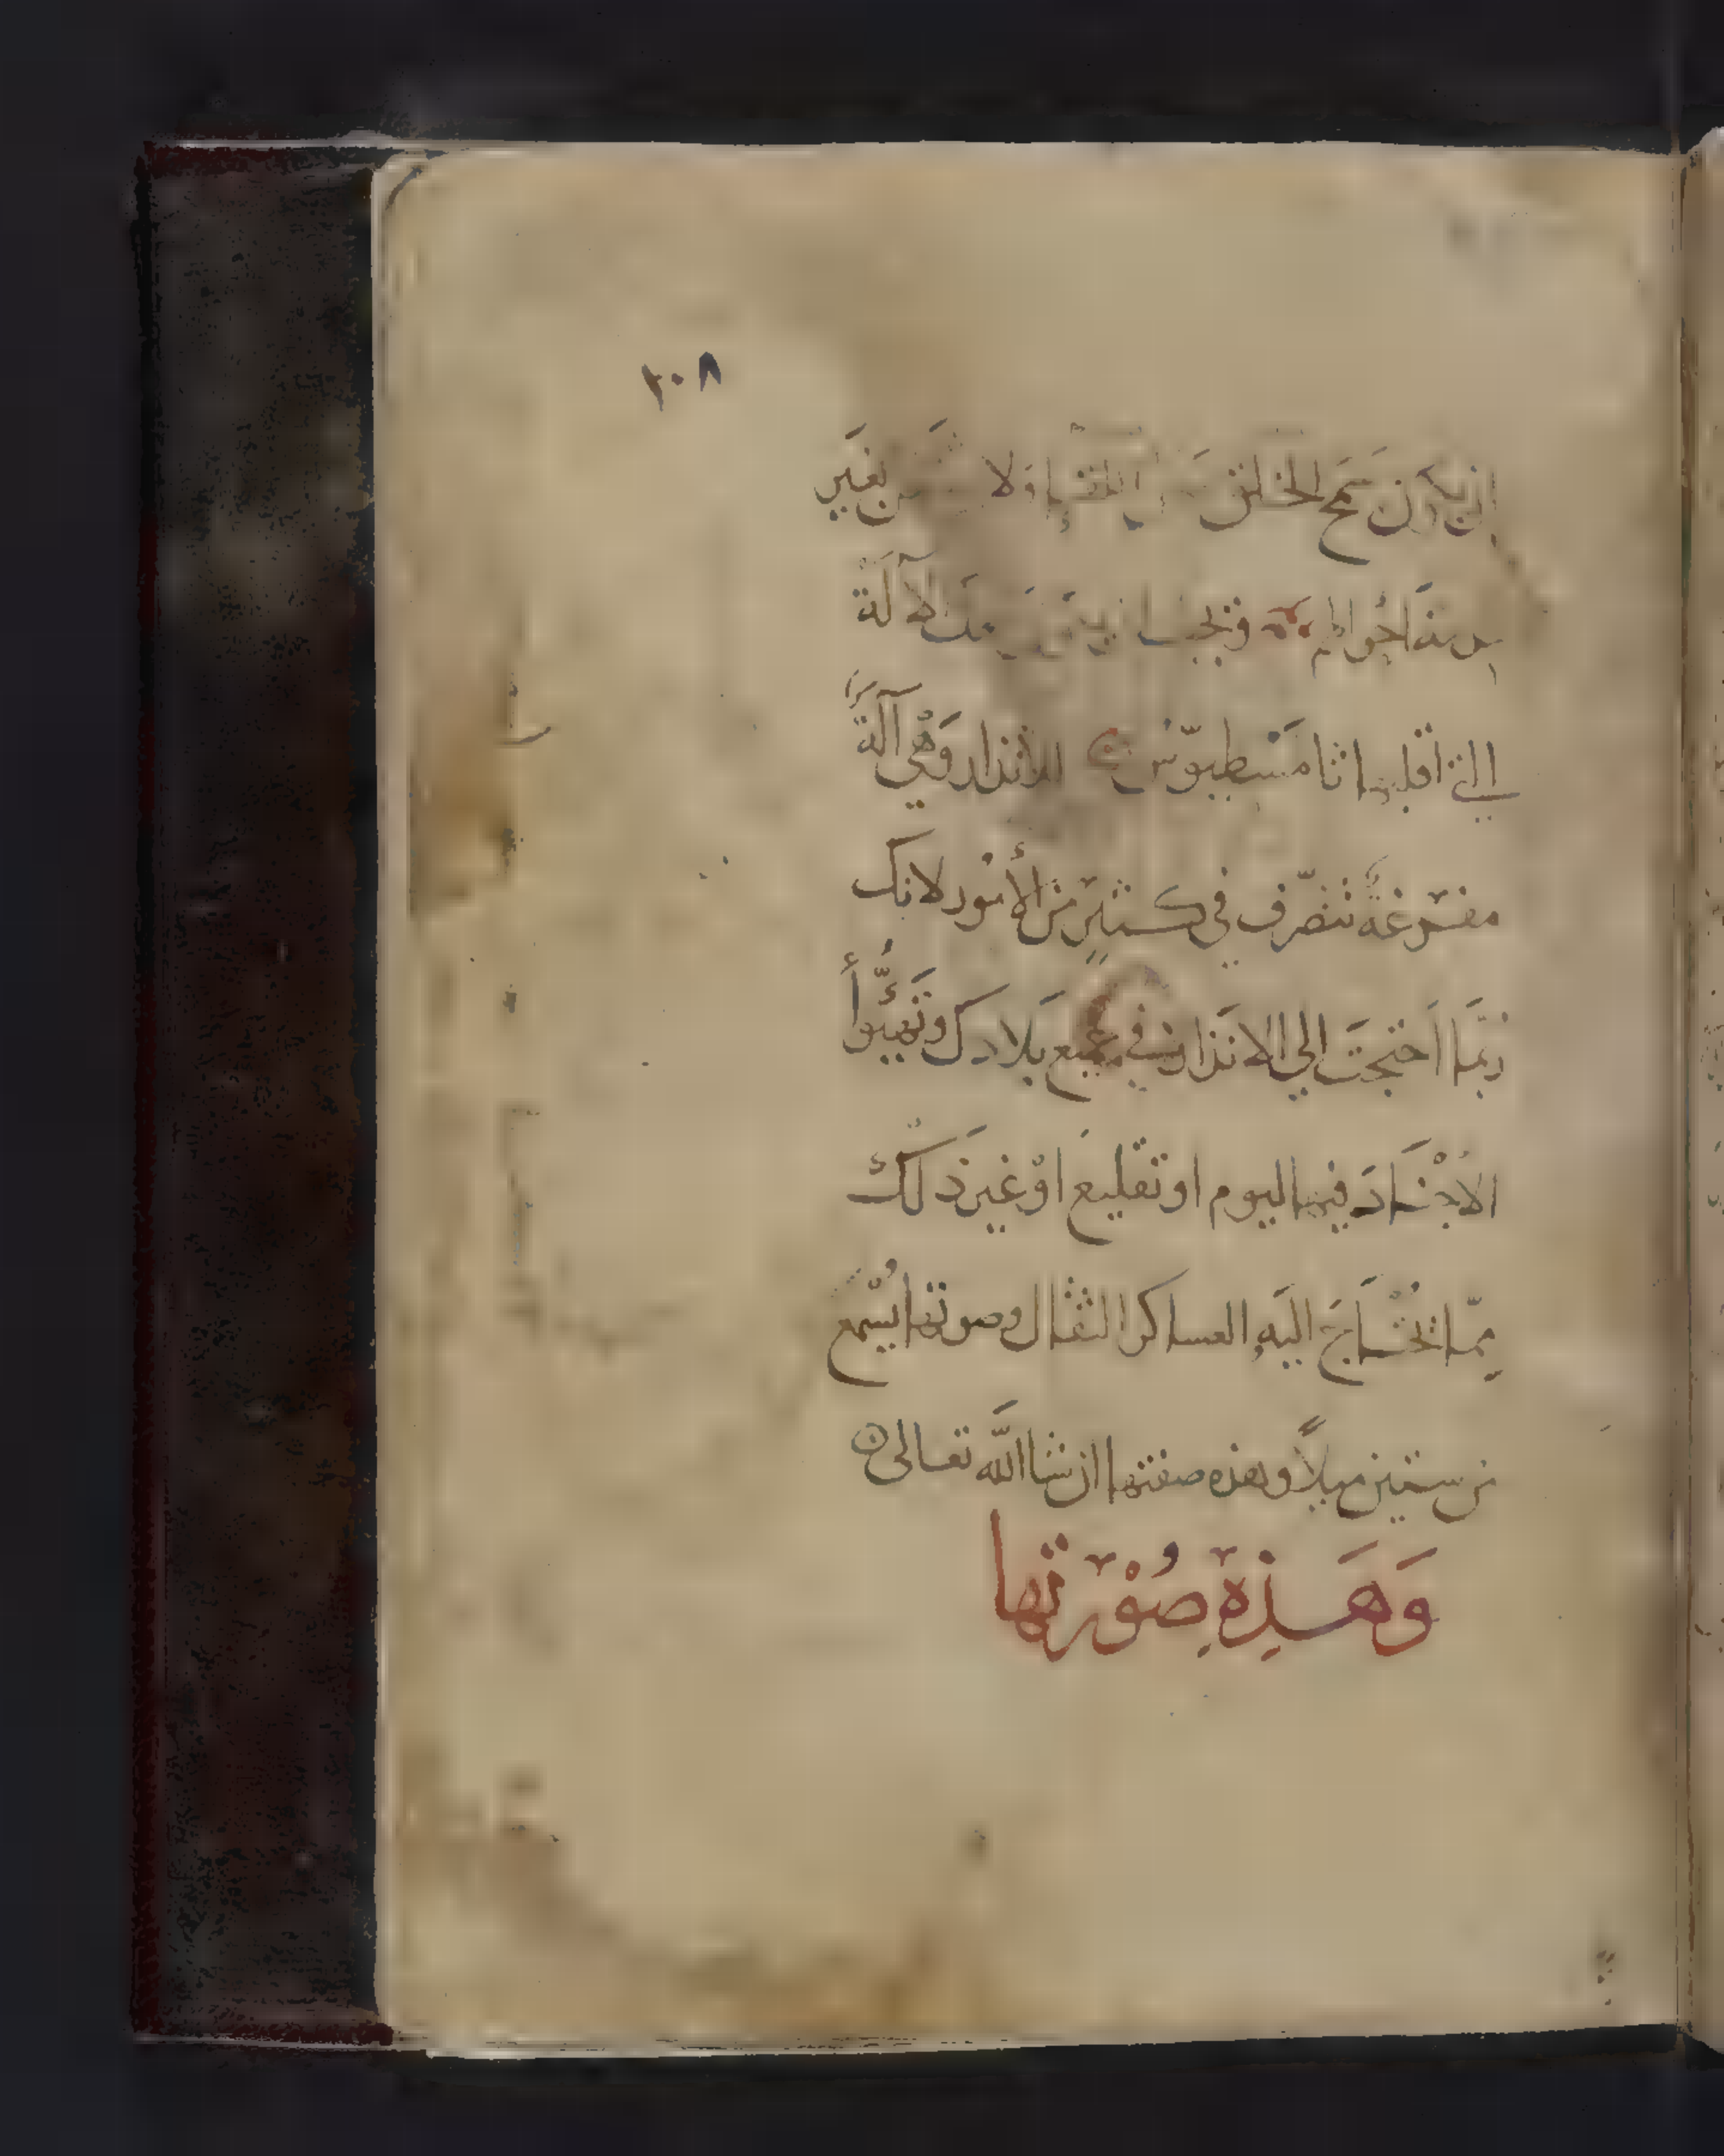 ١٠٨
الخلق ولا بغير
احوالهم ويجب تلك الآلة
التي ثامسطيوس الانذار وهي آلةٌ
مفزعةً تتصرّف في كثيرٍ من الأمور لانك
ربَّما احتجت الي الانذار في جميع بلادك وتَهَيُّوأ
الاجْنَاد فيها اليوم او تقليع اوْ غير ذلك
ممّا تُحْتَاجَ اليَهِ العساكر الثقال وصوتها يُسْمع
من ستين ميلاً وهذه صفتها ان شا اللَّه تعالى
وَهَذِهِ صُوْرتها